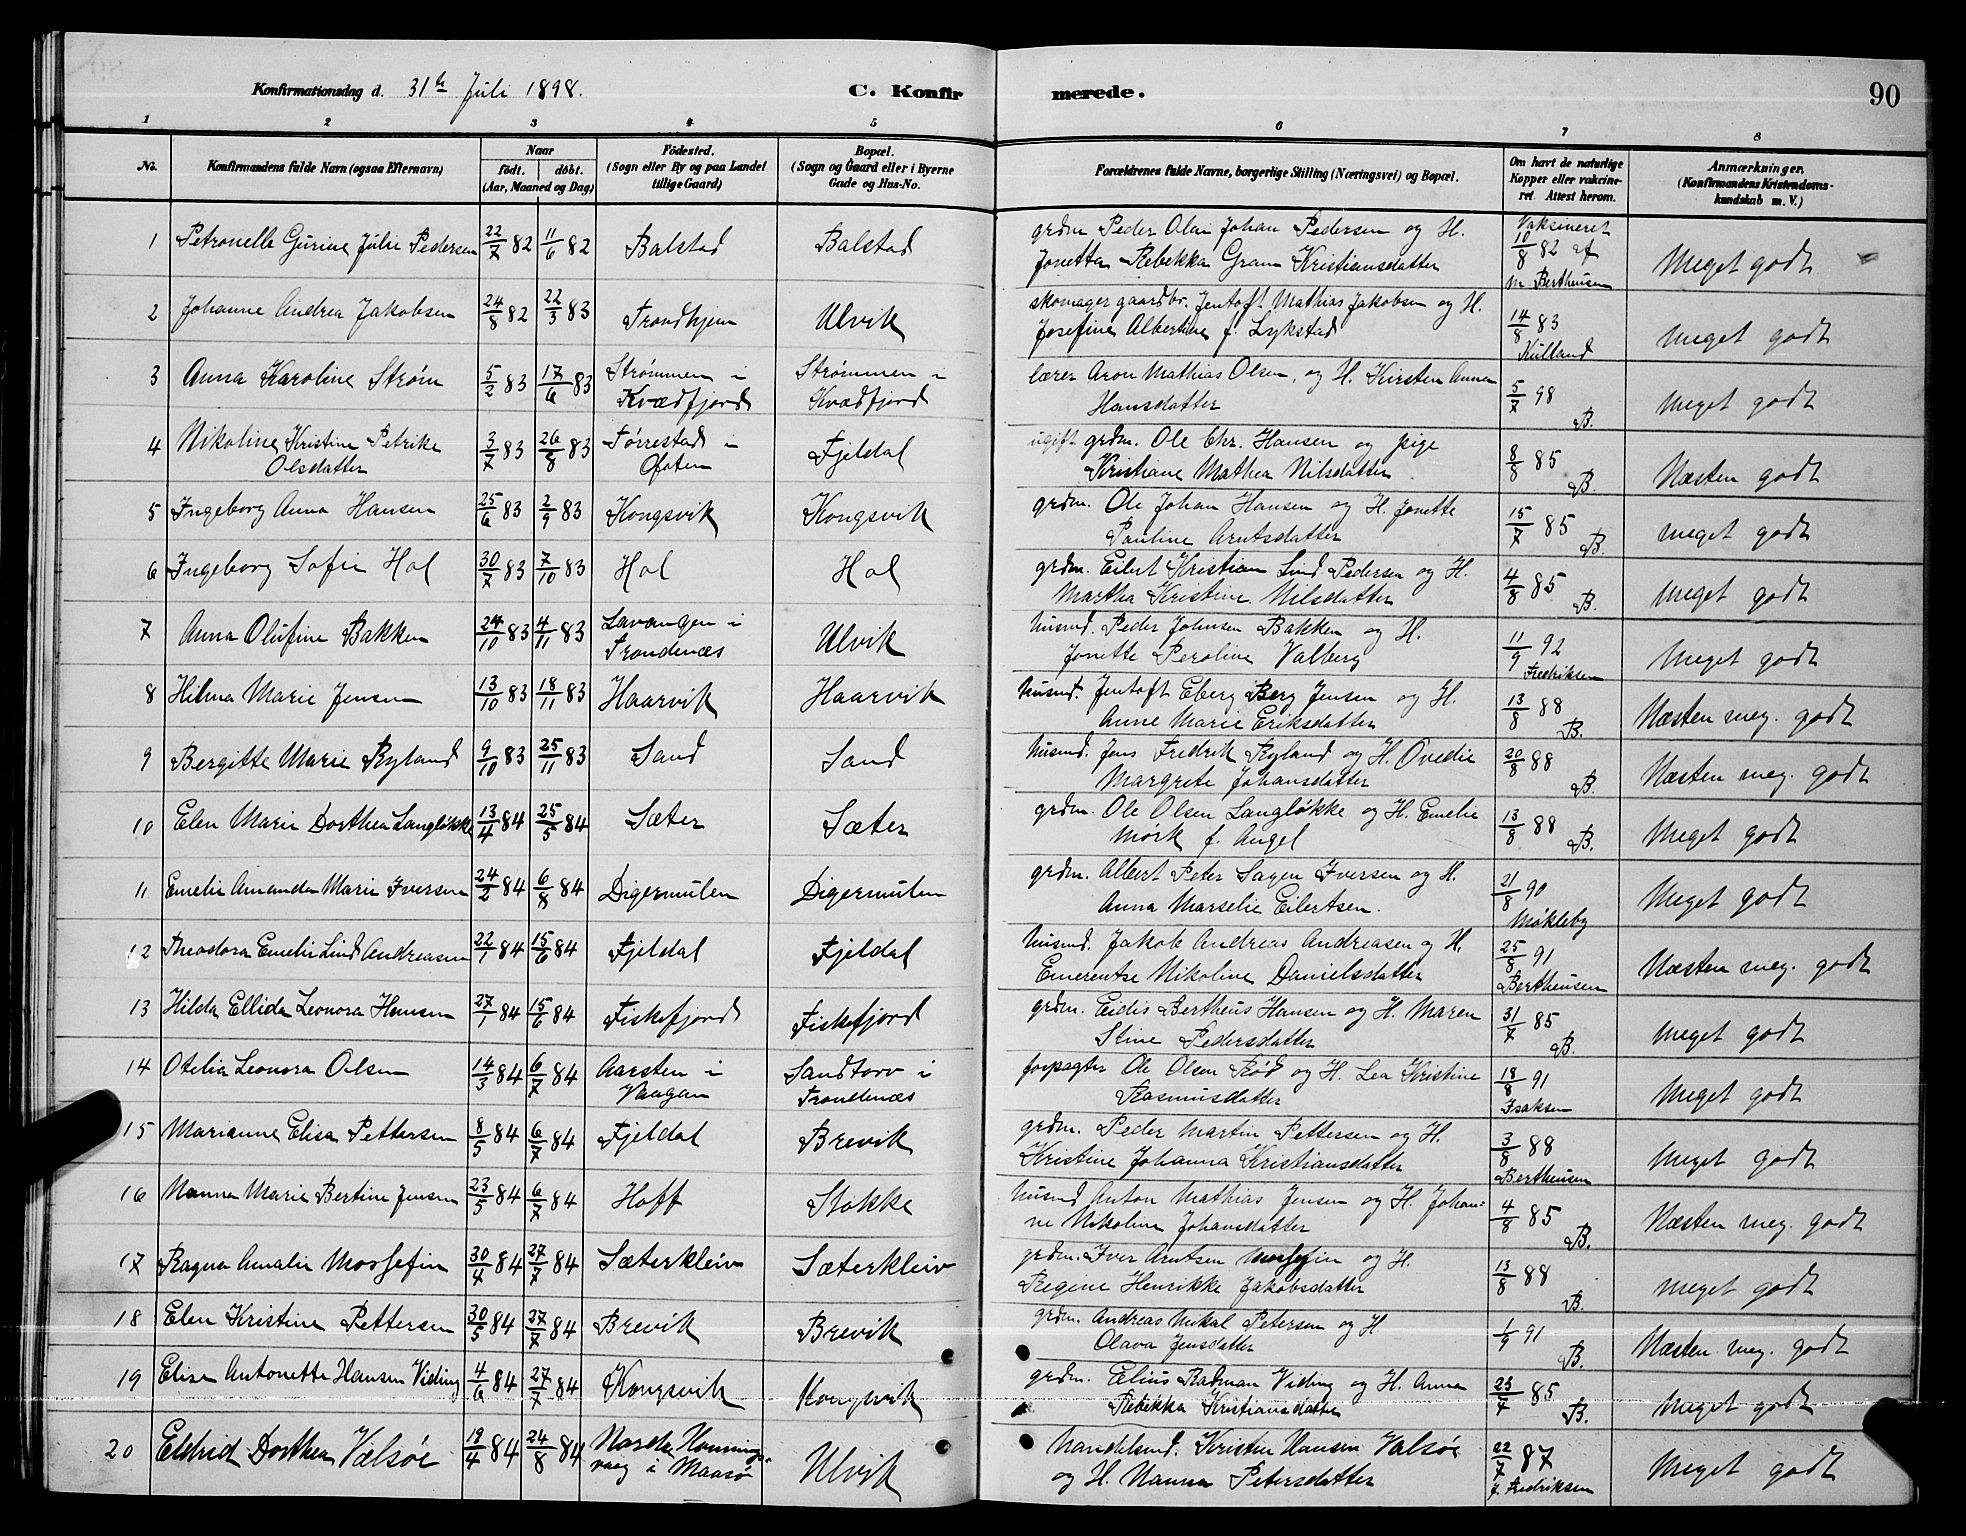 90
Konfirmationsdag d. 31te Juli 1898. C. Konfirmerede.
1 2 3 4 5 6 7 8
No. Konfirmandens fulde Navn (ogsaa Efternavn) Naar født. døbt. (Aar, Maaned og Dag) Fødested. (Sogn eller By og paa Landet tillige Gaard) Bopæl. (Sogn og Gaard eller i Byerne Gade og Hus-No. Forældrenes fulde Navne, borgerlige Stilling (Næringsvei) og Bopæl. Om havt de naturlige Kopper eller vakcineret Attest herom. Anmærkninger. (Konfirmandens Kristendomskundskab m. V.)
1 Petronelle Gurine Julie Pedersen 22/7 82 11/6 82 Balstad Balstad grdm. Peder Olai Johan Pedersen og H.
Jonetta Rebekka Gram Kristiansdatter Vaksineret 10/8 82 af M. Bertheusen Meget godt
2 Johanne Andrea Jakobsen 24/8 82 22/3 83 Trondhjem Ulvik skomager gaardbr. Jentoft Mathias Jakobsen og H.
Josefine Albertine f. Lykstad 14/8 83 Kulland meget godt
3 Anna Karoline Strøm 5/2 83 17/6 83 Strømmen i Kvædfjord Strømmen i Kvædfjord lærer Aron Mathias Olsen, og H. Kirsten Anna
Hansdatter 5/7 98 B. meget godt
4 Nikoline Kristine Petrike Olsdatter 3/7 83 26/8 83 Tørrestad i Ofoten Fjeldal ugift grdm. Ole Chr. Hansen og pige
Kristiane Mathea Nilsdatter 8/8 85 B. Næsten godt
5 Ingeborg Anna Hansen 25/6 83 2/9 83 Kongsvik Kongsvik grdm. Ole Johan Hansen og H. Jonette
Pauline Arntsdatter 15/7 85 B. meget godt
6 Ingeborg Sofie Hol 30/7 83 7/10 83 Hol Hol grdm. Eilert Kristian Lind Pedersen og H.
Martha Kristine Nilsdatter 4/8 85 B. meget godt
7 Anna Olufine Bakken 24/10 83 4/11 83 Lavangen i Trondenæs Ulvik husmd. Peder Johnsen Bakken og H.
Jonette Peroline Valberg 11/9 92 Fredriksen Meget godt
8 Hilma Marie Jensen 13/10 83 18/11 83 Haarvik Haarvik husmd. Jentoft Eberg Berg Jensen og H.
Anne Marie Eriksdatter 13/8 88 B. Næsten meg. godt
9 Bergitte Marie Ryland 9/10 83 25/11 83 Sand Sand husmd. Jens Fredrik Ryland og H. Ovedie
Margrete Johansdatter 20/8 88 B. Næsten meg. godt
10 Elen Marie Dorthea Langløkke 13/4 84 25/5 84 Sæter Sæter grdm. Ole Olsen Langløkke og H. Emelie
Mørk f. Angel 13/8 88 B. Meget godt
11 Emelie Amanda Marie Iversen 24/2 84 6/8 84 Digermulen Digermulen grdm. Albert Peter Sagen Iversen og H.
Anna Marselie Eilertsen. 21/8 90 Møkleby Meget godt
12 Theodora Emelie Lind Andreasen 22/1 84 15/6 84 Fjeldal Fjeldal husmd. Jakob Andreas Andreasen og H.
Emerentse Nikoline Danielsdatter 25/8 91 Bertheusen Næsten meg. godt
13 Hilda Ellida Leonora Hansen 27/1 84 15/6 84 Fiskefjord Fiskefjord grdm. Eidis Bertheus Hansen og H. Maren
Stine Pedersdatter 31/7 85 B. meget godt
14 Otelia Leonora Olsen 14/3 84 6/7 84 Aarsten i Vaagan Sandtorv i Trondenæs forpagter Ole Olsen Rød og H. Lea Kristine
Rasmusdatter 18/8 91 Isaksen Meget godt
15 Marianne Elisa Pettersen 8/5 84 6/7 84 Fjeldal Brevik grdm. Peder Martin Pettersen og H.
Kristine Johanna Kristiansdatter 3/8 88 Bertheusen meget godt
16 Nanna Marie Bertine Jensen 23/5 84 6/7 84 Hoff Stokke husmd Anton Mathias Jensen og H. Johan-
ne Nikoline Johansdatter 4/8 85 B. Næsten meg. godt
17 Ragna Amalie Mossefin 30/4 84 27/7 84 Sæterkleiv Sæterkleiv grdm. Iver Arntsen Mossefin og H.
Regine Henrikke Jakobsdatter 13/8 88 B. meget godt
18 Elen Kristine Pettersen 30/5 84 27/7 84 Brevik Brevik grdm. Andreas Mikal Petersen og H
Olava Jensdatter 1/9 91 B. Næsten meg. godt
19 Elise Antonette Hansen Viding 4/6 84 27/7 84 Kongsvik Kongsvik grdm. Elius Radman Viding og H. Anna
Rebekka Kristiansdatter 23/7 85 B. meget godt
20 Eldrid Dorthea Valsøe 19/4 84 24/8 84 Honningsvaag i Maasø Ulvik handelsmd. Kristen Hansen Valsøe
og H. Nanna Petersdatter 22/7 87 J. Fredriksen Meget godt